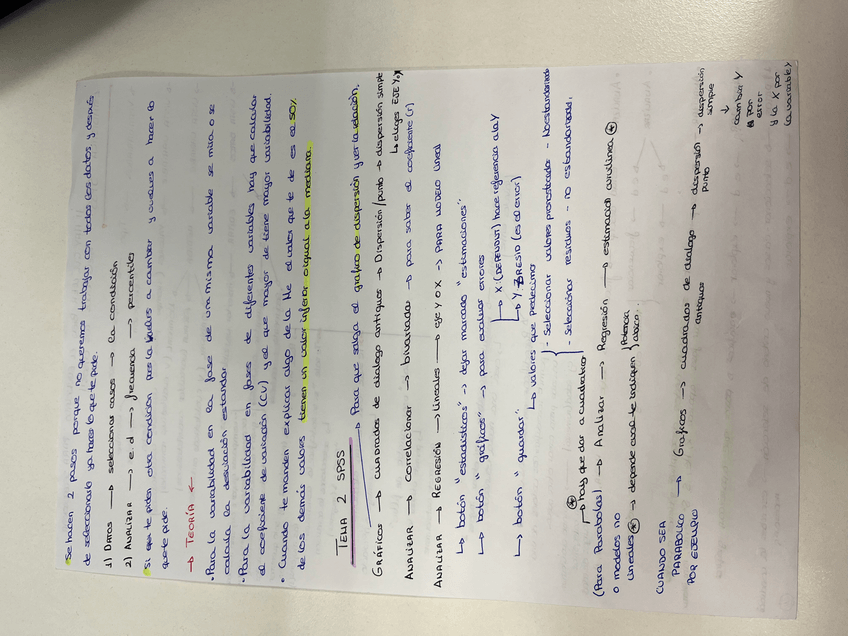 Se hacen 2 pasos porque no queremos trabajar con todos los datos y después
de seleccionarla ya hacer lo que te pide.
1) DATOS → seleccionar casos → la condición
2) ANALIZAR → e.d → frecuencia → percentiles
Si que te piden otra condición pues la vuelves a cambiar y vuelves a hacer lo
que te pide.
→ TEORÍA ←
• Para la variabilidad en la fase de una misma variable se mira o se
calcula la desviación estandar
• Para la variabilidad en fases de diferentes variables hay que calcular
el coeficiente de variación (CV) y el que mayor de tiene mayor variabilidad.
• Cuando te manden explicar algo de la Me el valor que te de es el 50%
de los demás valores tienen un valor inferior o igual a la mediana.
TEMA 2 SPSS
→ Para que salga el gráfico de dispersión y ver la relación.
GRÁFICOS → cuadrados de dialogo antiguos → Dispersión/punto → dispersión simple
↳ eliges EJE Y o X
ANALIZAR → correlacionar → bivariadas → para saber el coeficiente (r)
ANALIZAR → REGRESIÓN → lineales → eje Y o X → PARA MODELO lineal
↳ botón "estadísticos" → dejar marcado "estimaciones"
↳ botón "gráficos" → para evaluar errores
↳ X: (DEPENDNT) hace referencia a la Y
↳ Y: ZRESID (es el error)
↳ botón "guardar"
↳ valores que predecimo
- Seleccionar valores pronosticados - No estandarizado
- Seleccionar residuos - no estandarizados,
(*)
↳ hay que dar a cuadratico
(Para Parabolas) → Analizar → Regresión → estimación curvilinea (*)
o modelos no
lineales (*) → depende cual te indiquen
Potencia
Cubico...
CUANDO SEA
PARABOLICO → Graficos → cuadrados de dialogo antiguos → dispersión punto → dispersión simple
POR EJEMPLO
↓
cambiar Y
por
error
y la X por
la variable Y